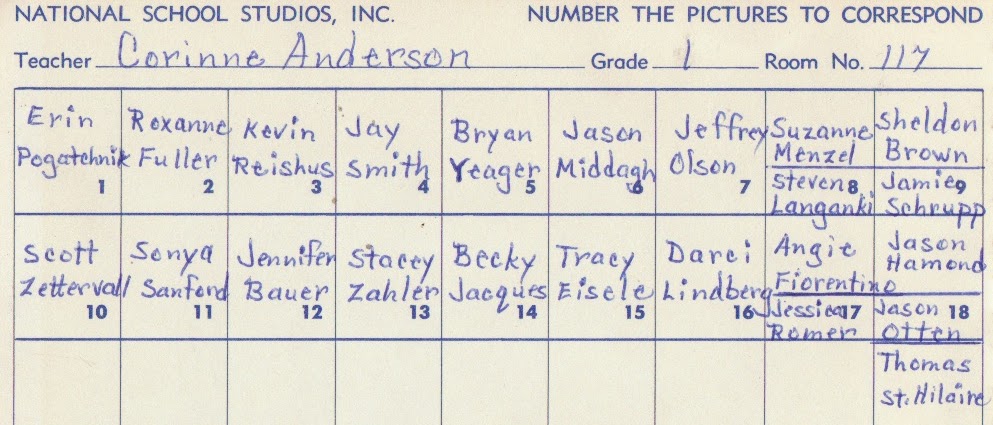 NATIONAL SCHOOL STUDIOS, INC. NUMBER THE PICTURES TO CORRESPOND
Teacher Corinne Anderson Grade 1 Room No. 117
Erin Pogatchnik 1
Roxanne Fuller 2
Kevin Reishus 3
Jay Smith 4
Bryan Yeager 5
Jason Middagh 6
Jeffrey Olson 7
Suzanne Menzel
Steven 8 Langanki
Sheldon Brown
Jamie 9 Schrupp
Scott Zettervall 10
Sonya Sanford 11
Jennifer Bauer 12
Stacey Zahler 13
Becky Jacques 14
Tracy Eisele 15
Darci Lindberg 16
Angie Fiorentino
Jessica 17 Romer
Jason Hamond
Jason 18 Otten
Thomas St. Hilaire